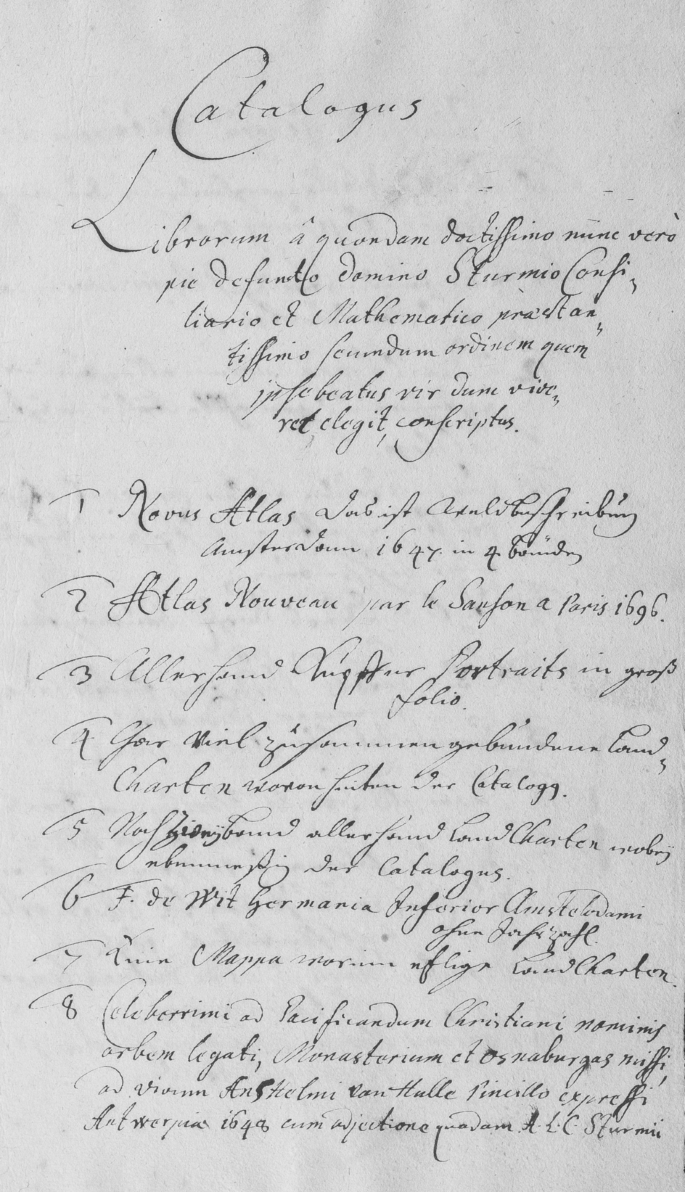 Catalogus
Librorum â quondam doctissimo nunc verò
pie defuncto domino Sturmio Consi-
liario et Mathematico præstan-
tissimo secundum ordinem quem
ipse beatus vir dum vive-
ret elegit, conscriptus.
1 Novus Atlas das ist Weldbeschreibung
Amsterdam 1647. in 4. bänden
2 Atlas Nouveau par le Sanson a Paris 1696.
3 Allerhand Kupffer Portraits in groß
folio.
4 Gar viel zusammen gebundene Land-
Charten woran hinten der Catalogg.
5 Noch band allerhand Land Charten wobey
ebenmeßig der Catalogus.
6 F. de Wit Germania Inferior Amstelodami
ohne Jahrzahl.
7 Eine Mappa worinn etlige Land Charten.
8 Celeberrimi ad Pacificandum Christiani nominis
orbem legati, Monasterium et Osnaburgas missi,
ad vivum Anshelmi van Hulle Pincillo expressi
Antwerpiæ 1648 cum adjectione quadam A. L. C. Sturmii